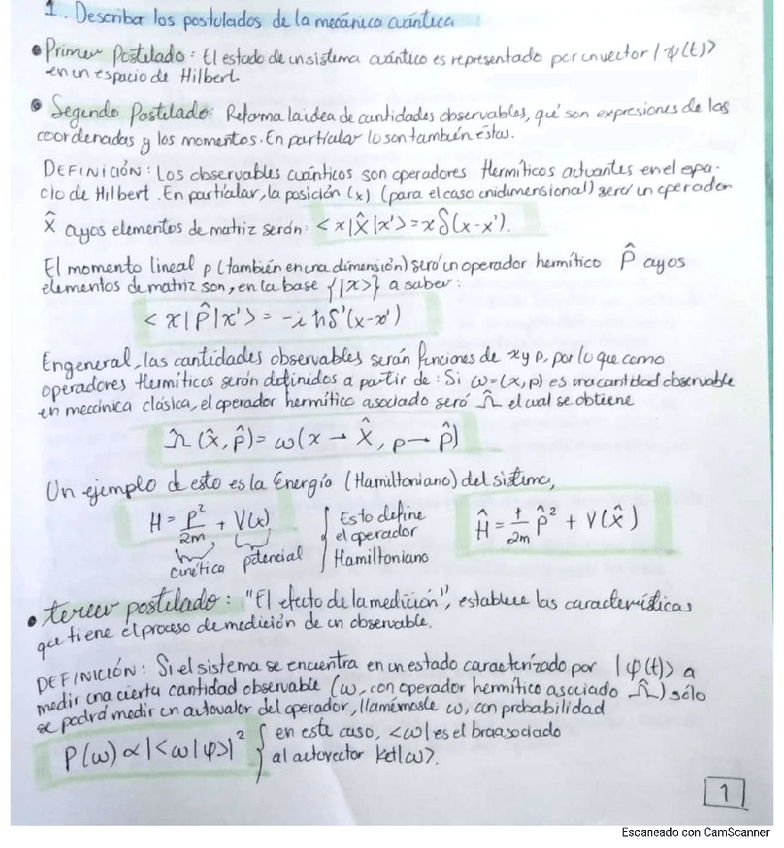 1. Describa los postulados de la mecánica cuántica
• Primer Postulado: El estado de un sistema cuántico es representado por un vector |ψ(t)>
en un espacio de Hilbert.
• Segundo Postulado: Reforma la idea de cantidades observables, qué son expresiones de las
coordenadas y los momentos. En partícular lo son también éstas.
DEFINICIÓN: Los observables cuánticos son operadores Hermíticos actuantes en el espa-
cio de Hilbert. En partícular, la posición (x) (para el caso unidimensional) será un operador
X̂ cuyos elementos de matriz serán: <x|X̂|x'> = xδ(x-x').
El momento lineal p (también en una dimensión) será un operador hermítico P̂ cuyos
elementos de matriz son, en la base {|x>} a saber:
<x|P̂|x'> = -iħδ'(x-x')
En general, las cantidades observables serán funciones de x y p, por lo que como
operadores Hermíticos serán definidos a partir de: Si ω=(x,p) es una cantidad observable
en mecánica clásica, el operador hermítico asociado será Ω̂ el cual se obtiene
Ω̂(x̂,p̂) = ω(x → X̂, p → p̂)
Un ejemplo de esto es la Energía (Hamiltoniano) del sistema,
H = P²/2m + V(x) { Esto define el operador Hamiltoniano Ĥ = 1/2m P̂² + V(X̂)
cinética potencial
• tercer postulado: "El efecto de la medición", establece las características
que tiene el proceso de medición de un observable.
DEFINICIÓN: Si el sistema se encuentra en un estado caracterizado por |φ(t)> a
medir una cierta cantidad observable (ω, con operador hermítico asociado Ω̂) sólo
se podrá medir un autovalor del operador, llamémosle ω, con probabilidad
P(ω) ∝ |<ω|φ>|² { en este caso, <ω| es el bra asociado
al autovector ket |ω>.
1
Escaneado con CamScanner